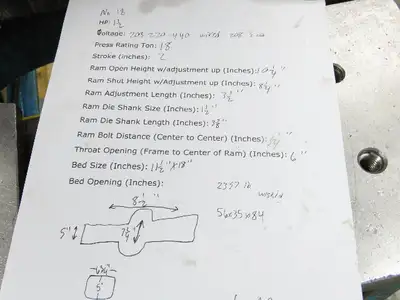 No 18
HP: 1½
Voltage: 208-220-440 wired 208
Press Rating Ton: 18
Stroke (inches): 2
Ram Open Height w/adjustment up (Inches): 10¼"
Ram Shut Height w/adjustment up (Inches): 8¼"
Ram Adjustment Length (Inches): 2½"
Ram Die Shank Size (Inches): 1½"
Ram Die Shank Length (Inches): 2⅜"
Ram Bolt Distance (Center to Center) (Inches):
Throat Opening (Frame to Center of Ram) (Inches): 6"
Bed Size (Inches): 11½" x 18"
Bed Opening (Inches):
2357 lb
8½"
56x35x84
5"
7¼"
5"